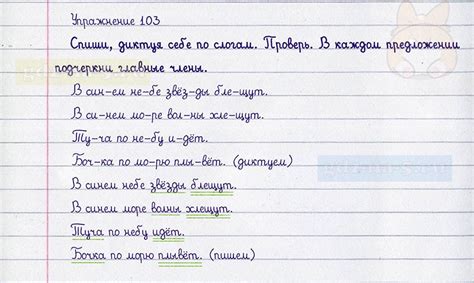 Упражнение 103
Спиши, диктуя себе по слогам. Проверь. В каждом предложении
подчеркни главные члены.
В син-ем не-бе звёз-ды бле-щут.
В си-нем мо-ре вол-ны хле-щут.
Ту-ча по не-бу и-дёт.
Боч-ка по мо-рю плы-вёт. (диктуем)
В синем небе звёзды блещут.
В синем море волны хлещут.
Туча по небу идёт.
Бочка по морю плывёт. (пишем)